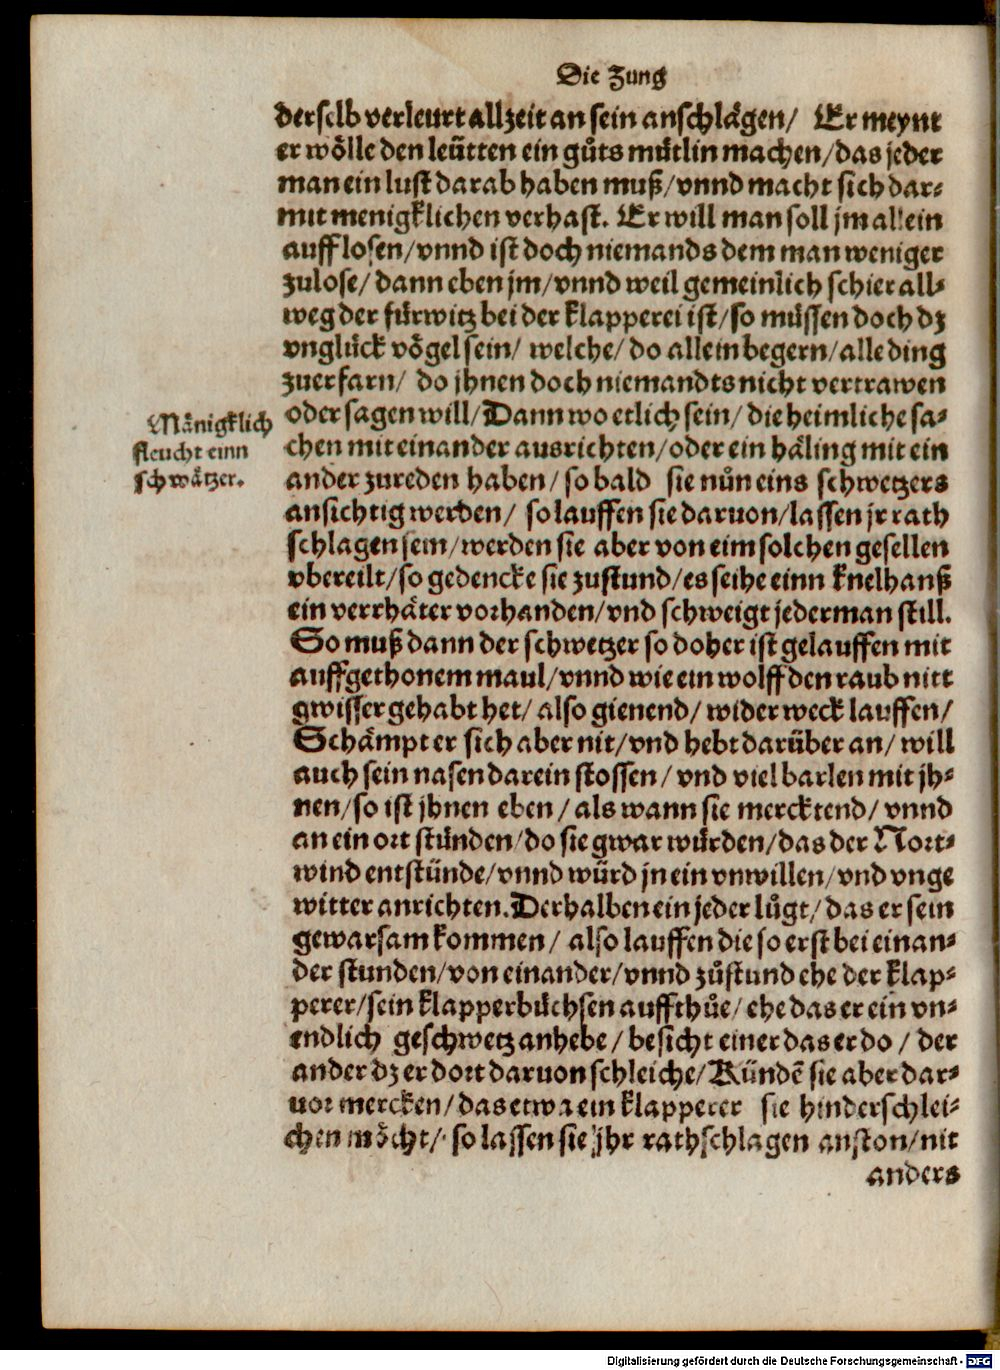 Die Zung
derselb verleurt allzeit an sein anschlägen/ Er meynt
er wölle den leütten ein gůts můtlin machen/das jeder
man ein lust darab haben muß/vnnd macht sich dar-
mit menigklichen verhast. Er will man soll jm allein
auff losen/vnnd ist doch niemands dem man weniger
zulose/ dann eben jm/vnnd weil gemeinlich schier all-
weg der fürwitz bei der klapperei ist/so müssen doch dz
vnglück vögel sein/ welche/ do allein begern/alle ding
zuerfarn/ do jhnen doch niemandts nicht vertrawen
oder sagen will/Dann wo etlich sein/die heimliche sa-
chen mit einander ausrichten/oder ein häling mit ein
ander zureden haben/so bald sie nůn eins schwetzers
ansichtig werden/ so lauffen sie daruon/lassen jr rath
schlagen sein/werden sie aber von eim solchen gesellen
vbereilt/so gedencke sie zustund/es seihe einn knelhanß
ein verrhäter vorhanden/vnd schweigt jederman still.
So muß dann der schwetzer so doher ist gelauffen mit
auffgethonem maul/vnnd wie ein wolff den raub nitt
gwisser gehabt het/ also gienend/ wider weck lauffen/
Schämpt er sich aber nit/vnd hebt darüber an/ will
auch sein nasen darein stossen/ vnd viel barlen mit jh-
nen/so ist jhnen eben/ als wann sie mercktend/ vnnd
an ein ort stünden/do sie gwar würden/das der Nort-
wind entstünde/vnnd würd jn ein vnwillen/vnd vnge
witter anrichten.Derhalben ein jeder lůgt/das er sein
gewarsam kommen/ also lauffen die so erst bei einan-
der stunden/von einander/vnnd zůstund ehe der klap-
perer/sein klapperbüchsen auffthůe/ehe das er ein vn-
endlich geschwetz anhebe/ besicht einer das er do/ der
ander dz er dort daruon schleiche/Kündē sie aber dar-
uor mercken/das etwa ein klapperer sie hinderschlei-
chen möcht/ so lassen sie jhr rathschlagen anston/nit
anders
Mänigklich
fleucht einn
schwätzer.
Digitalisierung gefördert durch die Deutsche Forschungsgemeinschaft - DFG